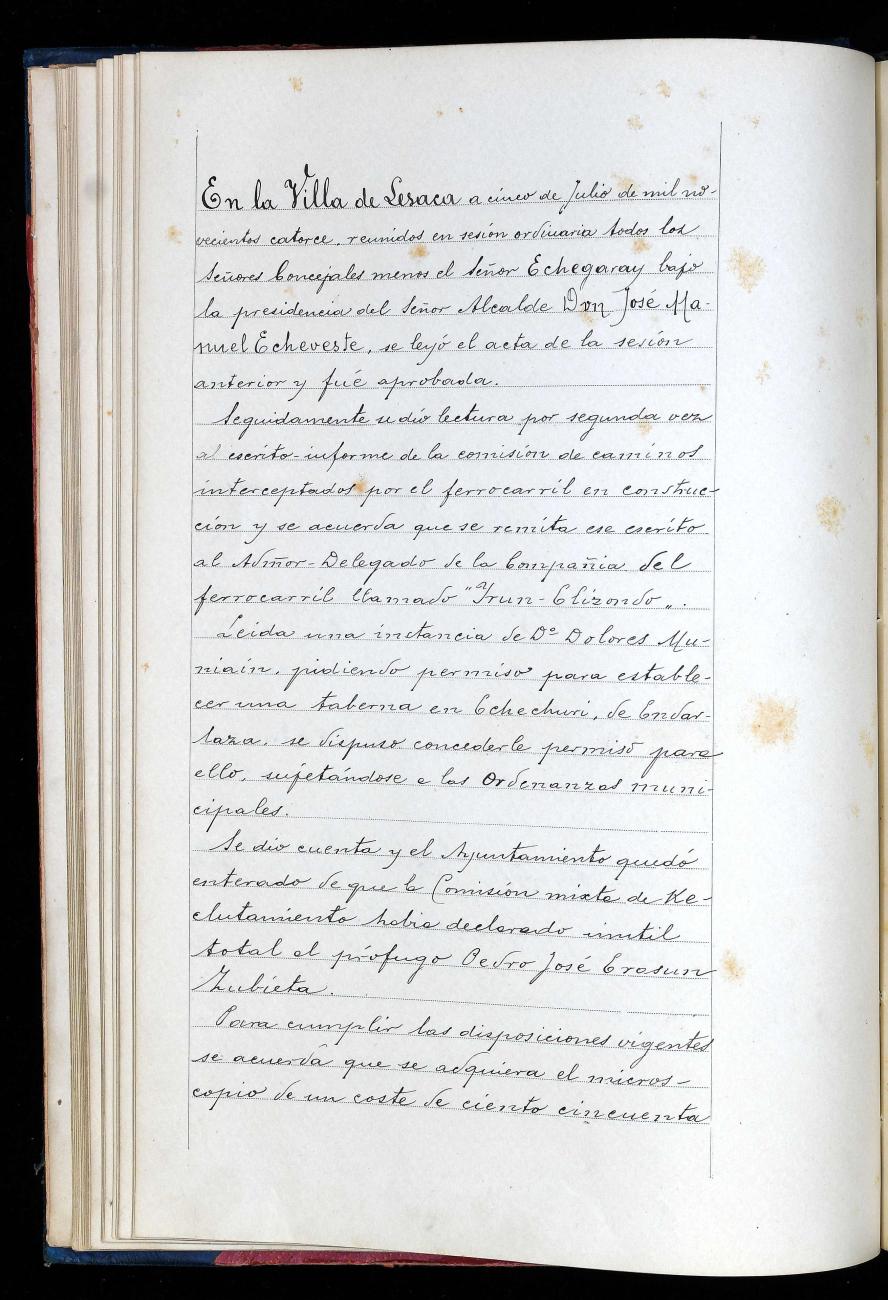 En la Villa de Lesaca a cinco de Julio de mil no-
vecientos catorce, reunidos en sesión ordinaria todos los
Señores Concejales menos el Señor Echegaray bajo
la presidencia del Señor Alcalde Don José Ma-
nuel Echeveste, se leyó el acta de la sesión
anterior y fué aprobada.
Seguidamente se dió lectura por segunda vez
al escrito-informe de la comisión de caminos
interceptados por el ferrocarril en construc-
ción y se acuerda que se remita ese escrito
al Admor-Delegado de la Compañia del
ferrocarril llamado "Yrun-Elizondo".
Leida una instancia de Dª Dolores Mu-
niain, pidiendo permiso para estable-
cer una taberna en Echechuri, de Endar-
laza, se dispuso concederle permiso para
ello, sujetándose a las Ordenanzas muni-
cipales.
Se dio cuenta y el Ayuntamiento quedó
enterado de que la Comisión mixta de Re-
clutamiento habia declarado inutil
total al prófugo Pedro José Erasun
Zubieta.
Para cumplir las disposiciones vigentes
se acuerda que se adquiera el micros-
copio de un coste de ciento cincuenta